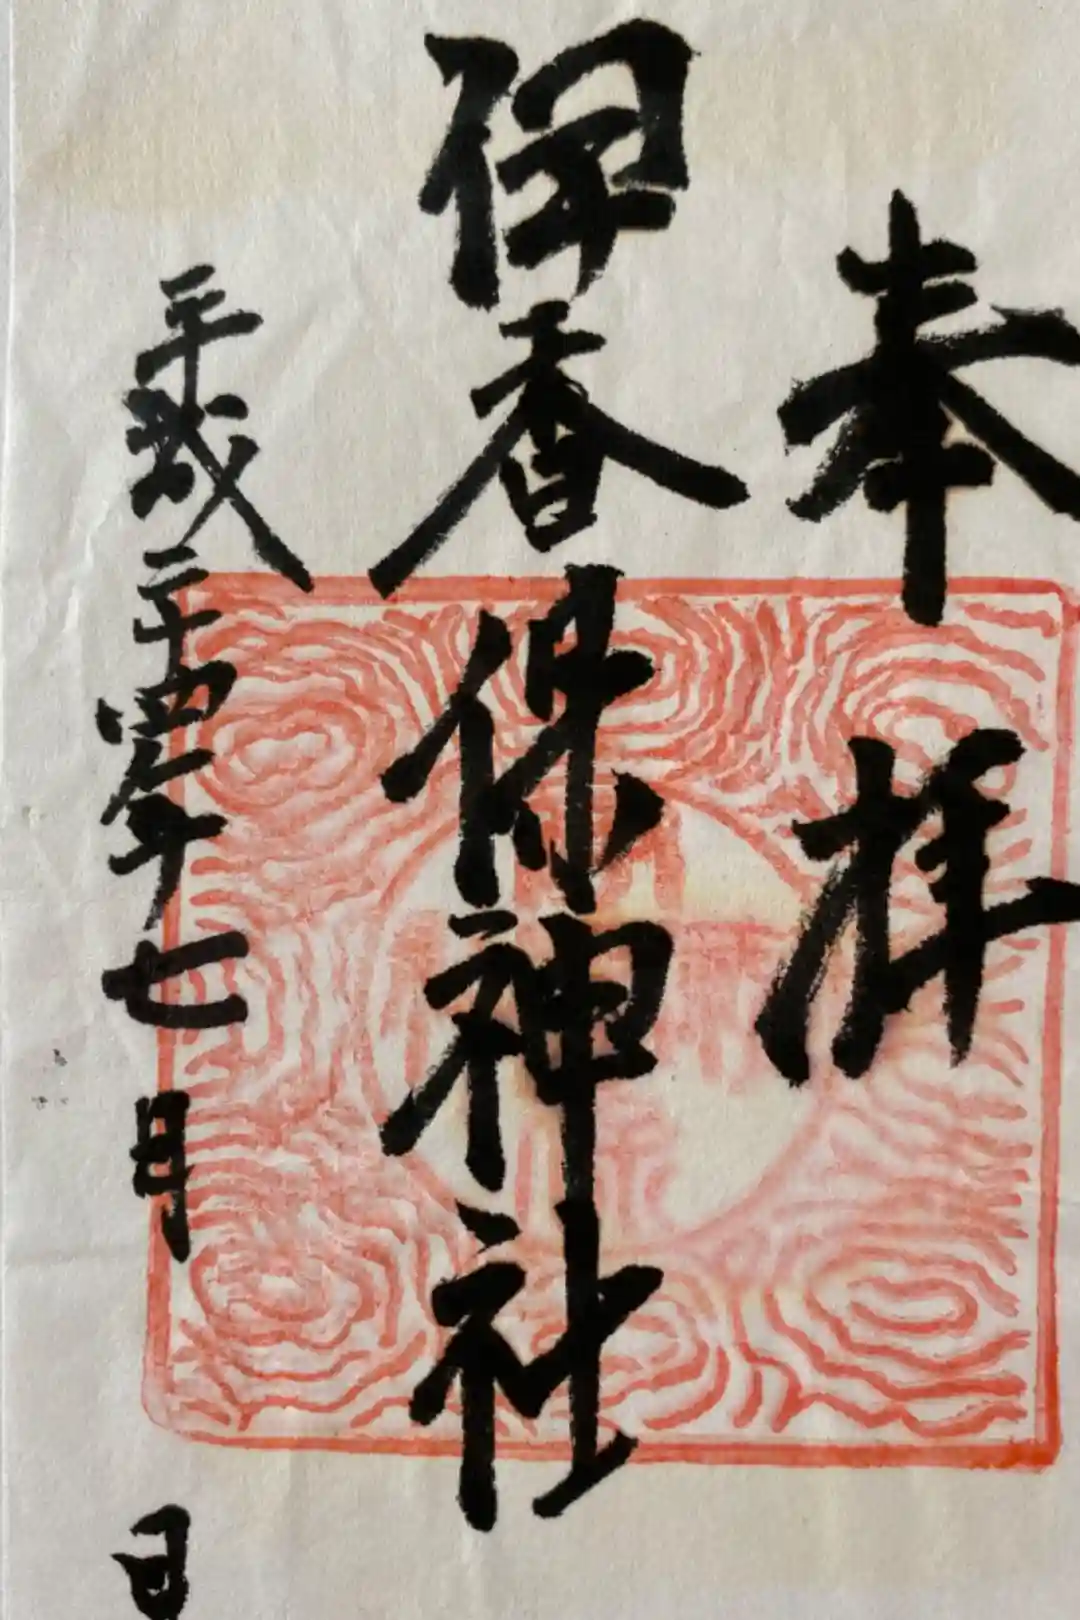 奉拝
伊香保神社
平成二十四年七月 日